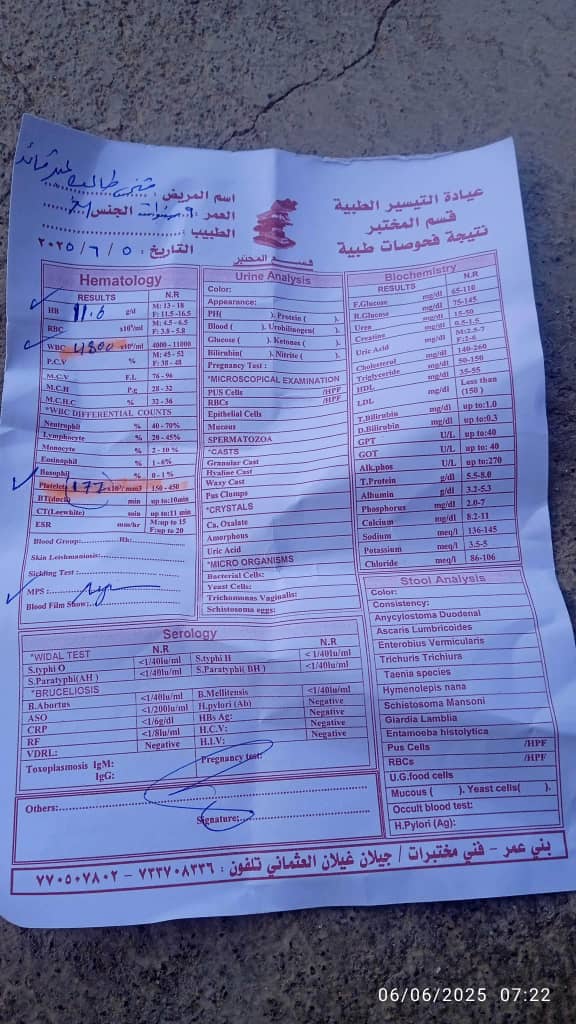 عيادة التيسير الطبية
قسم المختبر
نتيجة فحوصات طبية
قسم المختبر
اسم المريض:
العمر: ٩ سنوات الجنس:
الطبيب:
التاريخ: ٥ / ٦ / ٢٠٢٥
Hematology
RESULTS N.R
HB 11.6 g/d M: 13 - 18 F: 11.5-16.5
RBC x10⁶/ml M: 4.5 - 6.5 F: 3.8 - 5.8
WBC 4800 x10⁶/ml 4000 - 11000
P.C.V % M: 45 - 52 F: 38 - 48
M.C.V F.L 76 - 96
M.C.H P.g 28 - 32
M.C.H.C % 32 - 36
*WBC DIFFERENTIAL COUNTS
Neutrophil % 40 - 70%
Lymphocyte % 20 - 45%
Monocyte % 2 - 10%
Eosinophil % 1 - 6%
Basophil % 0 - 1%
Platelets 177 x10³/mm3 150 - 450
BT(duck) min up to:10min
CT(Leewhite) min up to:11 min
ESR mm/hr M:up to 15 F:up to 20
Blood Group: Rh:
Skin Leishmaniosis:
Sickling Test :
MPS :
Blood Film Show:
Urine Analysis
Color:
Appearance:
PH( ). Protein ( ).
Blood ( ). Urobilinogen( ).
Glucose ( ). Ketones ( ).
Bilirubin( ). Nitrite ( ).
Pregnancy Test :
*MICROSCOPICAL EXAMINATION
PUS Cells /HPF
RBCs /HPF
Epithelial Cells
Mucous
SPERMATOZOA
*CASTS
Granular Cast
Hyaline Cast
Waxy Cast
Pus Clumps
*CRYSTALS
Ca. Oxalate
Amorphous
Uric Acid
*MICRO ORGANISMS
Bacterial Cells:
Yeast Cells:
Trichomonas Vaginalis:
Schistosoma eggs:
Biochemistry
RESULTS N.R
F.Glucose mg/dl 65-110
R.Glucose mg/dl 75-145
Urea mg/dl 15-50
Creatine mg/dl 0.5-1.5
Uric Acid mg/dl M:2.5-7 F:2-6
Cholesterol mg/dl 140-260
Triglyceride mg/dl 50-150
HDL mg/dl 35-55
LDL mg/dl Less than (150 )
T.Bilirubin mg/dl up to:1.0
D.Bilirubin mg/dl up to:0.3
GPT U/L up to:40
GOT U/L up to: 40
Alk.phos U/L up to:270
T.Protein g/dl 5.5-8.0
Albumin g/dl 3.2-5.3
Phosphorus mg/dl 2.0-7
Calcium mg/dl 8.2-11
Sodium meq/l 136-145
Potassium meq/l 3.5-5
Chloride meq/l 86-106
Stool Analysis
Color:
Consistency:
Anycylostoma Duodenal
Ascaris Lumbricoides
Enterobius Vermicularis
Trichuris Trichiura
Taenia species
Hymenolepis nana
Schistosoma Mansoni
Giardia Lamblia
Entamoeba histolytica
Pus Cells /HPF
RBCs /HPF
U.G.food cells
Mucous ( ). Yeast cells( ).
Occult blood test:
H.Pylori (Ag):
Serology
*WIDAL TEST N.R N.R
S.typhi O <1/40lu/ml S.typhi H <1/40lu/ml
S.Paratyphi(AH ) <1/40lu/ml S.Paratyphi( BH ) <1/40lu/ml
*BRUCELIOSIS
B.Abortus <1/40lu/ml B.Mellitensis <1/40lu/ml
ASO <1/200lu/ml H.pylori (Ab) Negative
CRP <1/6g/dl HBs Ag: Negative
RF <1/8lu/ml H.C.V: Negative
VDRL: Negative H.I.V: Negative
Toxoplasmosis IgM: Pregnancy test:
IgG:
Others:
Signature:
بني عمر - فني مختبرات / جيلان غيلان العثماني تلفون : ٧٣٣٧٠٨٣٣٦ - ٧٧٠٥٠٧٨٠٢
06/06/2025 07:22